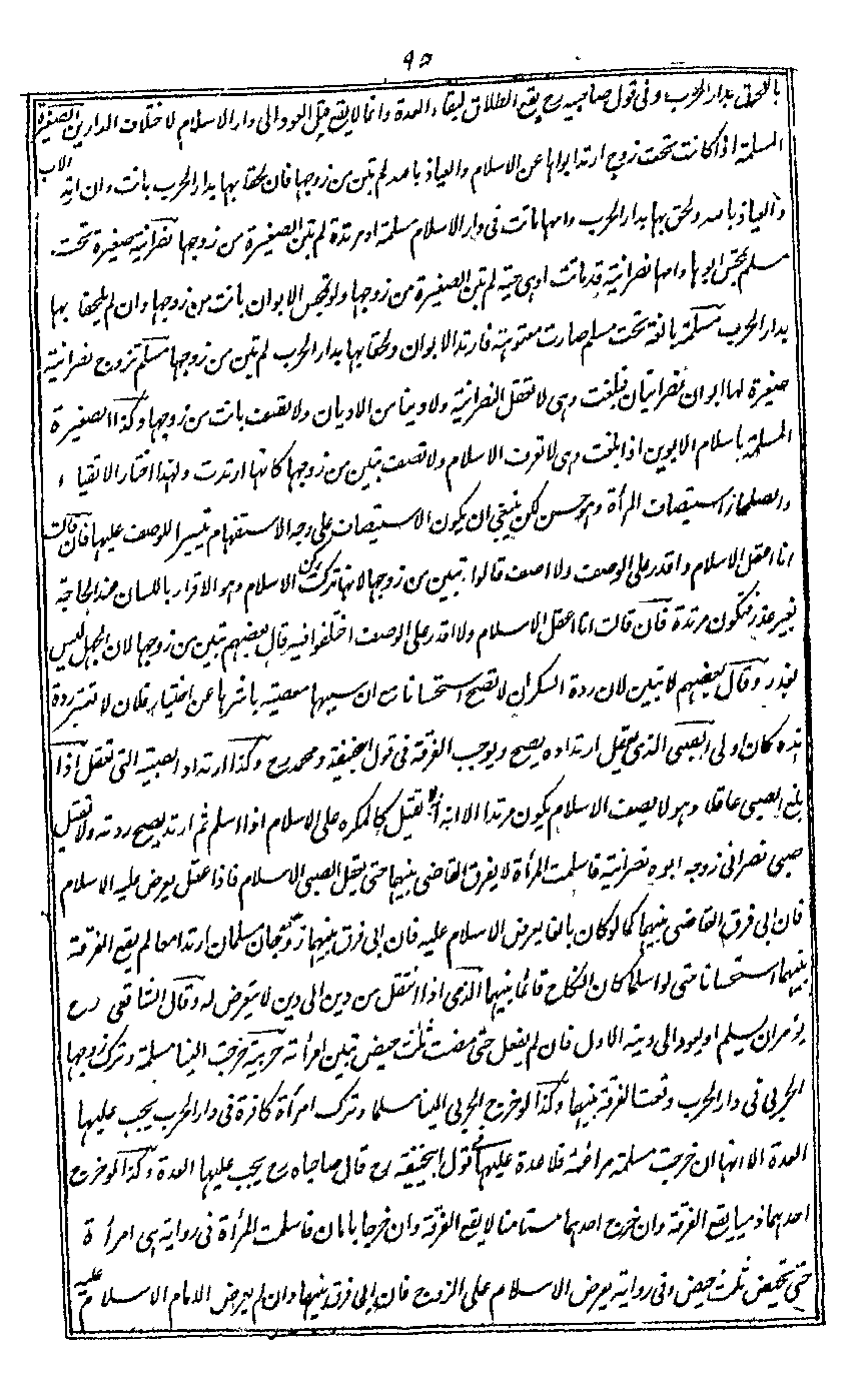 ٩٥
باللحوق بدار الحرب وفي قول صاحبيه رح يقع الطلاق لبقاء العدة وانما لا يقع قبل العود الى دار الاسلام لاختلاف الدارين الصغيرة
المسلمة اذا كانت تحت زوج ارتد ابواها عن الاسلام والعياذ بالله لم تبن من زوجها فان لحقا بها بدار الحرب بانت وان ارتد الاب
والعياذ بالله ولحق بها بدار الحرب وامها ماتت في دار الاسلام مسلمة او مرتدة لم تبن الصغيرة من زوجها نصرانية صغيرة تحت
مسلم تمجس ابوها وامها نصرانية قد ماتت او هي حية لم تبن الصغيرة من زوجها ولو تمجس الابوان بانت من زوجها وان لم يلحقا بها
بدار الحرب مسلمة بالغة تحت مسلم صارت معتوهة فارتد الابوان ولحقا بها بدار الحرب لم تبن من زوجها مسلم تزوج نصرانية
صغيرة لها ابوان نصرانيان فبلغت وهي لا تعقل النصرانية ولا دينا من الاديان ولا تصف بانت من زوجها وكذا الصغيرة
المسلمة باسلام الابوين اذا بلغت وهي لا تعرف الاسلام ولا تصف تبين من زوجها كانها ارتدت ولهذا اختار الاتقياء
والصلحاء استيصاف المرأة وهو حسن لكن ينبغي ان يكون الاستيصاف على وجه الاستفهام تيسيرا للوصف عليها فان قالت
انا اعقل الاسلام واقدر على الوصف ولا اصف قالوا تبين من زوجها لانها تركت ركن الاسلام وهو الاقرار باللسان عند الحاجة
بغير عذر فتكون مرتدة فان قالت انا اعقل الاسلام ولا اقدر على الوصف اختلفوا فيه قال بعضهم تبين من زوجها لان الجهل ليس
بعذر وقال بعضهم لا تبين لان ردة السكران لا تصح استحسانا مع ان سببها معصية باشرها عن اختيار فلان لا تعتبر ردة
هذه كان اولى الصبي الذي يعقل ارتداده يصح ويوجب الفرقة في قول ابيحنيفة ومحمد رح وكذا ارتداد الصبية التي تعقل اذا
بلغ الصبي عاقلا وهو لا يصف الاسلام يكون مرتدا الا انه لا يقتل كالمكره على الاسلام اذا اسلم ثم ارتد يصح ردته ولا يقتل
صبي نصراني زوجه ابوه نصرانية فاسلمت المرأة لا يفرق القاضي بينهما حتى يعقل الصبي الاسلام فاذا عقل يعرض عليه الاسلام
فان ابى فرق القاضي بينهما كما لو كان بالغا يعرض الاسلام عليه فان ابى فرق بينهما زوجان مسلمان ارتدا معا لم يقع الفرقة
بينهما استحسانا حتى لو اسلما كان النكاح قائما بينهما الذمي اذا انتقل من دين الى دين لا يتعرض له وقال الشافعي رح
يؤمر ان يسلم او يعود الى دينه الاول فان لم يفعل حتى مضت ثلث حيض تبين امرأته حربية خرجت الينا مسلمة وترك زوجها
الحربي في دار الحرب وقعت الفرقة بينهما وكذا لو خرج الحربي الينا مسلما وترك امرأة كافرة في دار الحرب يجب عليها
العدة الا انها ان خرجت مسلمة مراغمة فلا عدة عليها في قول ابيحنيفة رح قال صاحباه رح يجب عليها العدة وكذا لو خرج
احدهما ذميا يقع الفرقة وان خرج احدهما مستامنا لا يقع الفرقة وان خرجا بامان فاسلمت المرأة في رواية هي امرأة
حتى تحيض ثلث حيض وفي رواية يعرض الاسلام على الزوج فان ابى فرق بينهما وان لم يعرض الامام الاسلام عليه